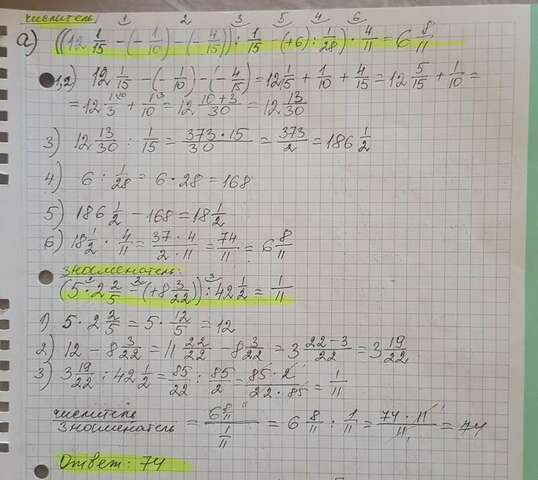 числитель: 1 2 3 5 4 6
а) ((12 1/15 - (-1/10) - (-4/15)) : 1/15 - (+6) : 1/28) · 4/11 = 6 8/11
1,2) 12 1/15 - (-1/10) - (-4/15) = 12 1/15 + 1/10 + 4/15 = 12 5/15 + 1/10 =
= 12 1/3 + 1/10 = 12 10+3/30 = 12 13/30
3) 12 13/30 : 1/15 = 373·15/30 = 373/2 = 186 1/2
4) 6 : 1/28 = 6 · 28 = 168
5) 186 1/2 - 168 = 18 1/2
6) 18 1/2 · 4/11 = 37·4/2·11 = 74/11 = 6 8/11
знаменатель:
(5 · 2 2/5 - (+8 3/22)) : 42 1/2 = 1/11
1) 5 · 2 2/5 = 5 · 12/5 = 12
2) 12 - 8 3/22 = 11 22/22 - 8 3/22 = 3 22-3/22 = 3 19/22
3) 3 19/22 : 42 1/2 = 85/22 : 85/2 = 85·2/22·85 = 1/11
числитель/знаменатель = 6 8/11 / 1/11 = 6 8/11 : 1/11 = 74·11/11 = 74
Ответ: 74